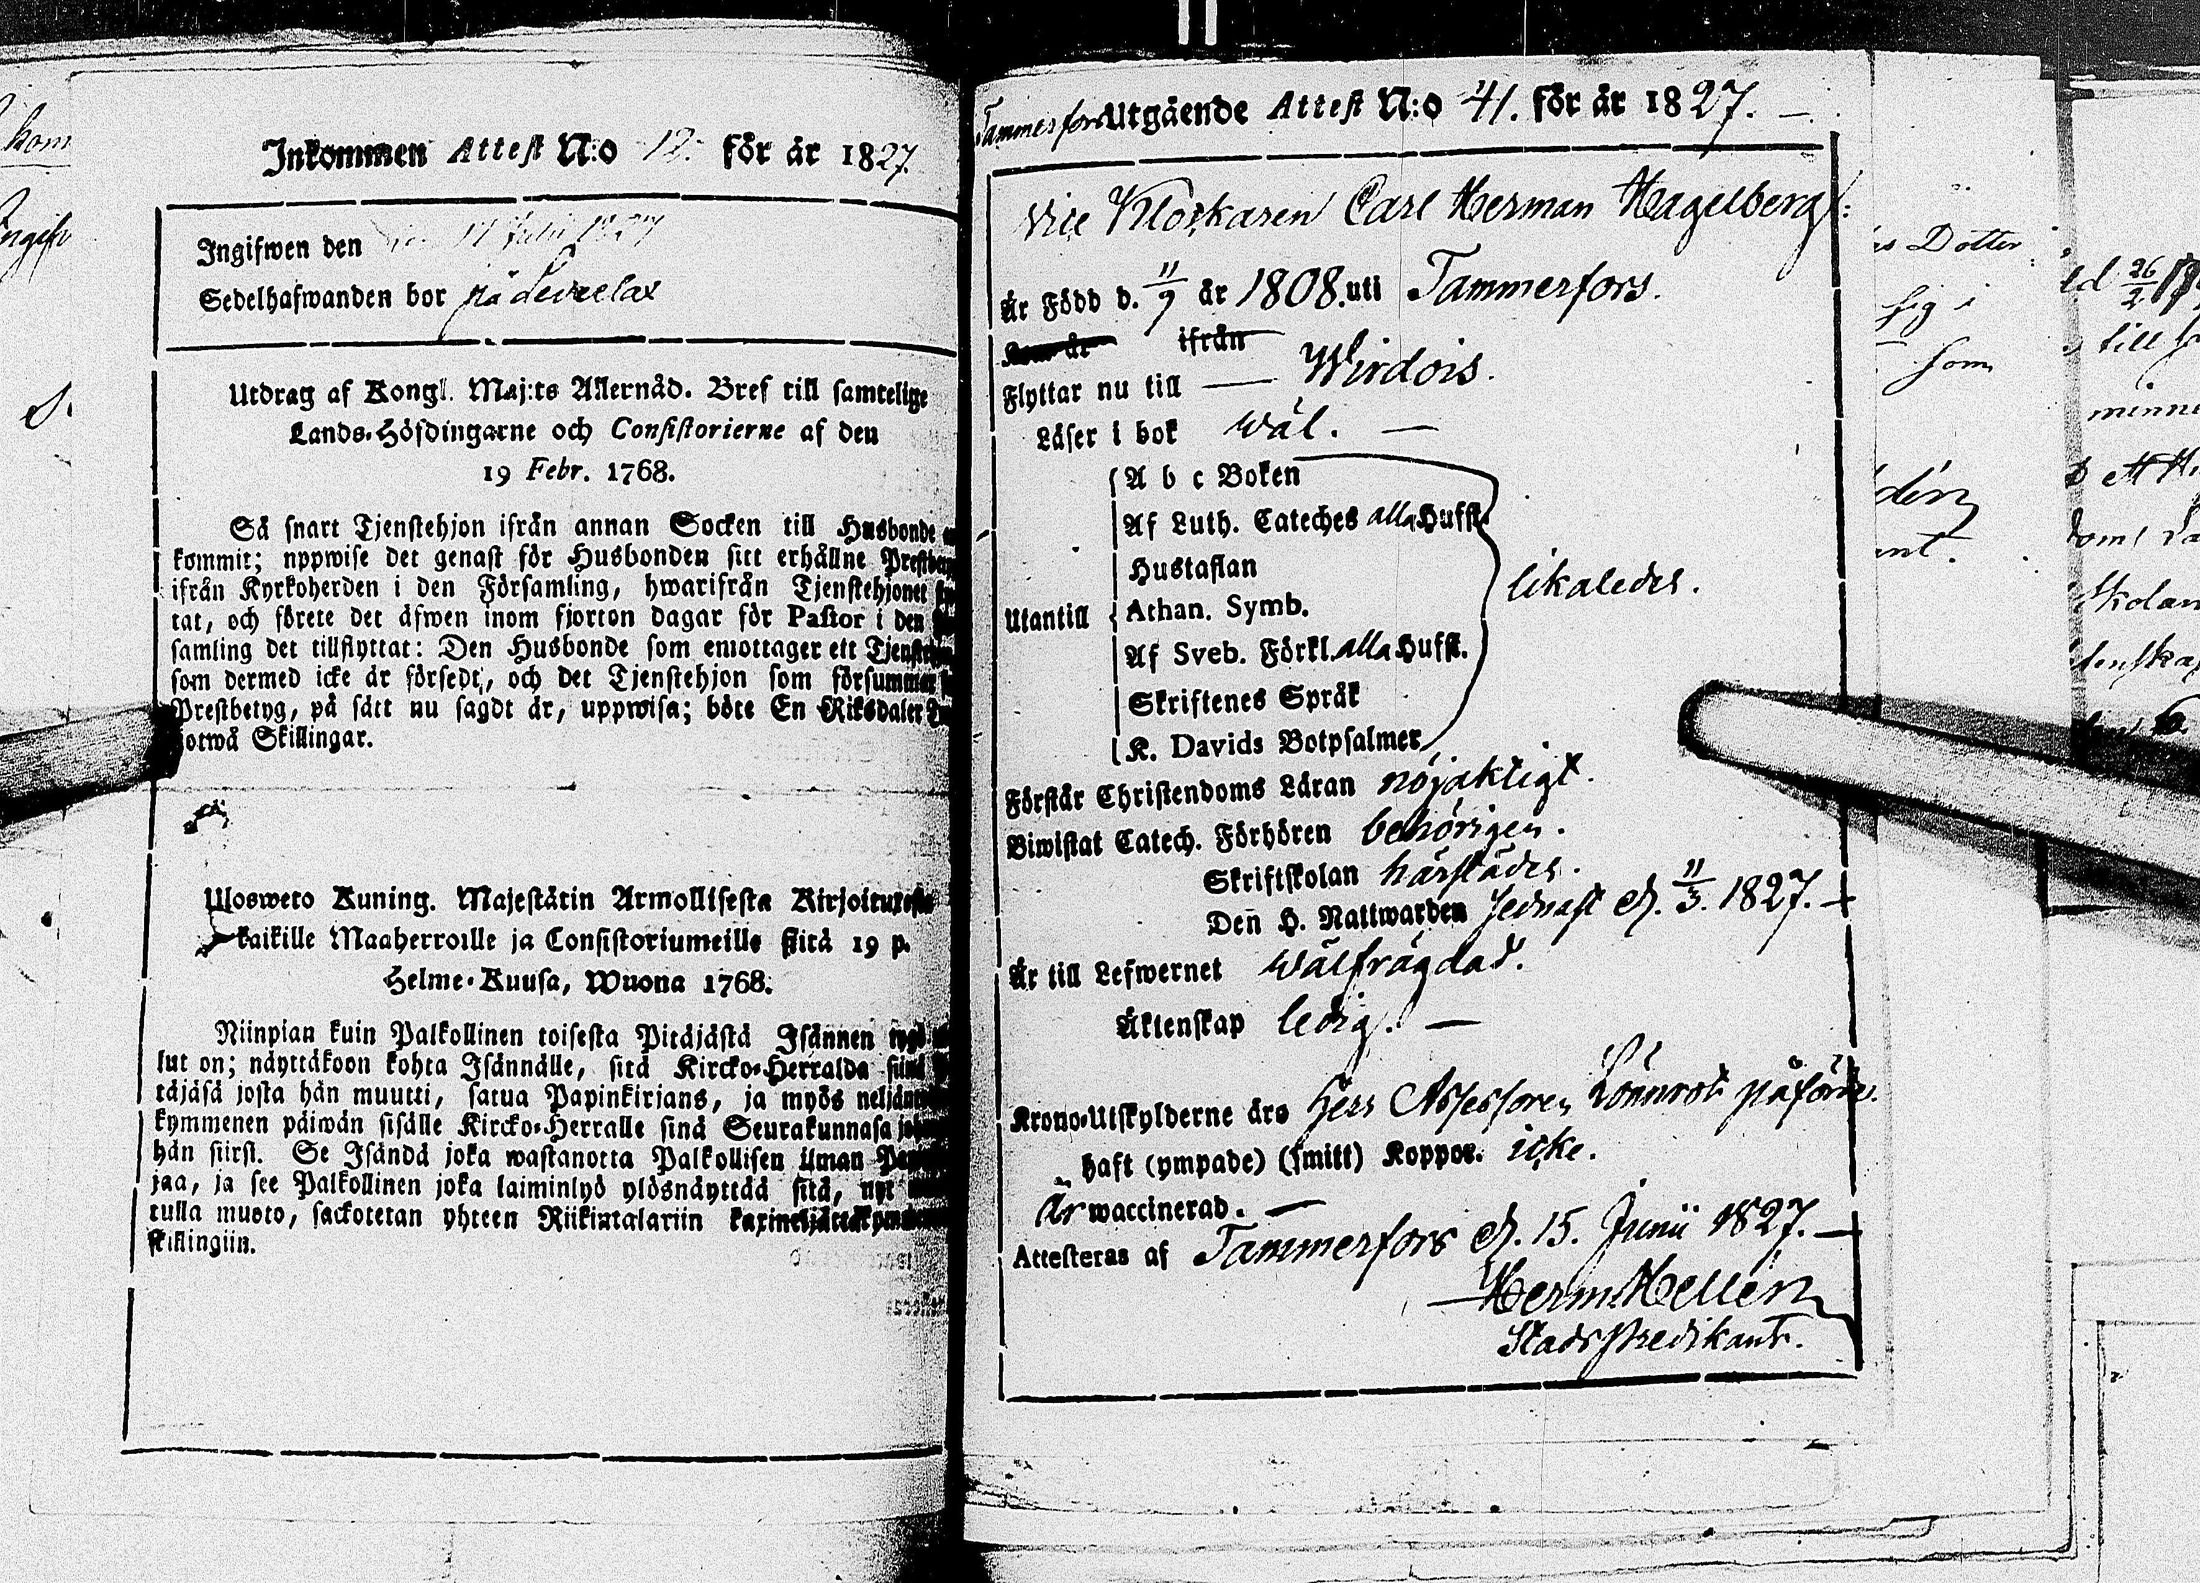 Inkommen Attest N:o 12. för år 1827.
Ingifwen den 17 Julii 1827
Sedelhafwanden bor på
Utdrag af Kongl. Maj:ts Allernåd. Bref till samtelige
Lands-Höfdingarne och Consistorierne af den
19 Febr. 1768.
Så snart Tjenstehjon ifrån annan Socken till Husbonde
kommit; uppwise det genast för Husbonden sitt erhållne
ifrån Kyrkoherden i den Församling, hwarifrån Tjenstehjonet
tat, och förete det äfwen inom fjorton dagar för Pastor i den
samling det tillflyttat: Den Husbonde som emottager ett
som dermed icke är försedt, och det Tjenstehjon som försummar
Prestbetyg, på sätt nu sagdt är, uppwisa; böte En Riksdaler
otwå Skillingar.
Ulosweto Kuning. Majestätin Armollisesta
kaikille Maaherroille ja Consistoriumeille siitä 19 p.
Helme-Kuusa, Wuona 1768.
Niinpian kuin Palkollinen toisesta Pitäjästä Isännen
lut on; näyttäkoon kohta Isännälle, sitä Kircko-Herralda
täjäsä josta hän muutti, satua Papinkirjans, ja myös
kymmenen päiwän sisälle Kircko-Herralle sinä Seurakunnasa
hän siirsi. Se Isändä joka wastanotta Palkollisen ilman
jaa, ja see Palkollinen joka laiminlyö ylösnäyttää sitä, nyt
tulla muoto, sackotetan yhteen Riikintalariin
skillingiin.
Tammerfors Utgående Attest N:o 41. för år 1827.
Vice Klockaren Carl Herman Hagelberg
Är Född d. 11/9 år 1808. uti Tammerfors.
Kom år ifrån
Flyttar nu till Wirdois.
Läser i bok wäl.
A b c Boken
Af Luth. Cateches alla Hufst.
Hustaflan
likaledes.
Utantill Athan. Symb.
Af Sveb. Förkl. alla Hufst.
Skriftenes Språk
K. Davids Botpsalmer
Förstår Christendoms Läran nöjaktigt.
Biwistat Catech. Förhören behörigen.
Skriftskolan härstädes.
Den H. Nattwarden sednast d. 11/3. 1827.
Är till Lefwernet wälfrägdad.
Äktenskap ledig.
Krono-Utskylderne äro Herr Assessoren Lönnrot påförde.
haft (ympade) (smitt) Koppor. icke.
Är waccinerad.
Attesteras af Tammerfors d. 15. Junii 1827.
Herm. Hellén
Stads predikant.